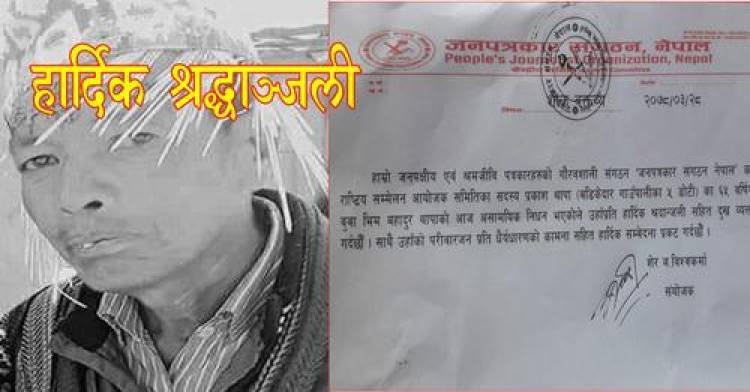 हार्दिक श्रद्धाञ्जली
जनपत्रकार संगठन, नेपाल
People's Journalist Organization, Nepal
शोक वक्तव्य
२०७८/०३/२८
हाम्रो जनपक्षीय एवं श्रमजीवि पत्रकारहरुको गौरवशाली संगठन 'जनपत्रकार संगठन नेपाल' क
राष्ट्रिय सम्मेलन आयोजक समितिका सदस्य प्रकाश थापा (बडिकेदार गाउंपालीका ५ डोटी) का ६५ वर्षि
बुवा भिम बहादुर थापाको आज असामयिक निधन भएकोले उहाँप्रति हार्दिक श्रदान्जली सहित दुख व्यक्
गर्दछौँ । साथै उहाँको परीवारजन प्रति धैर्यधारणको कामना सहित हार्दिक सम्वेदना प्रकट गर्दछौँ ।
शेर ब.विश्वकर्मा
संयोजक